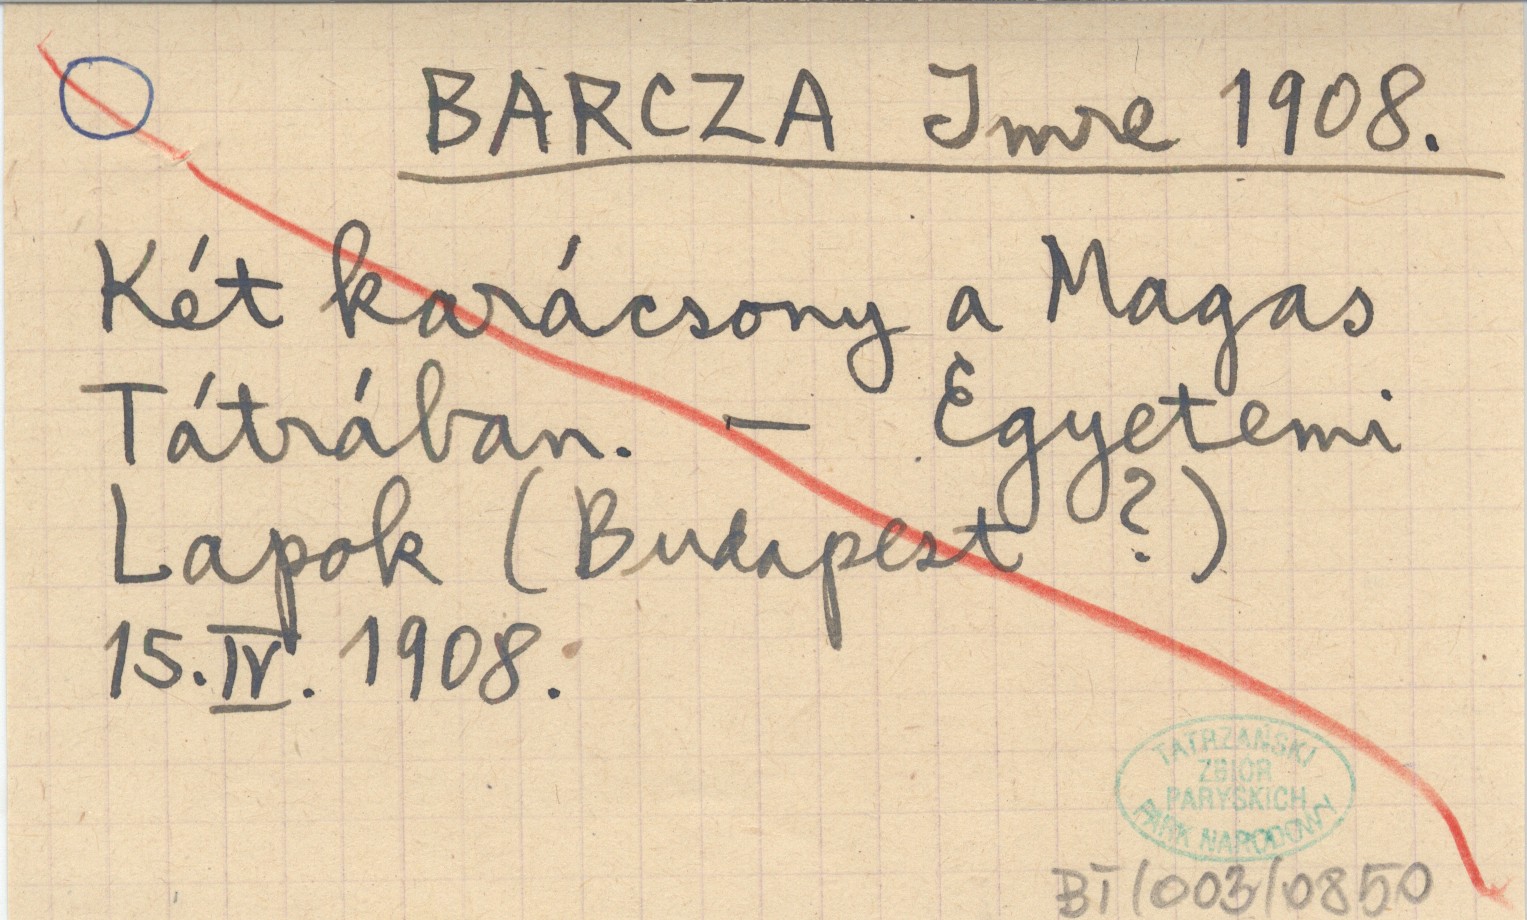 BARCZA Imre 1908.
Két karácsony a Magas
Tátrában. — Egyetemi
Lapok (Budapest ?)
15.IV. 1908.
TATRZAŃSKI
ZBIÓR
PARYSKICH
PARK NARODOWY
BT/003/0850